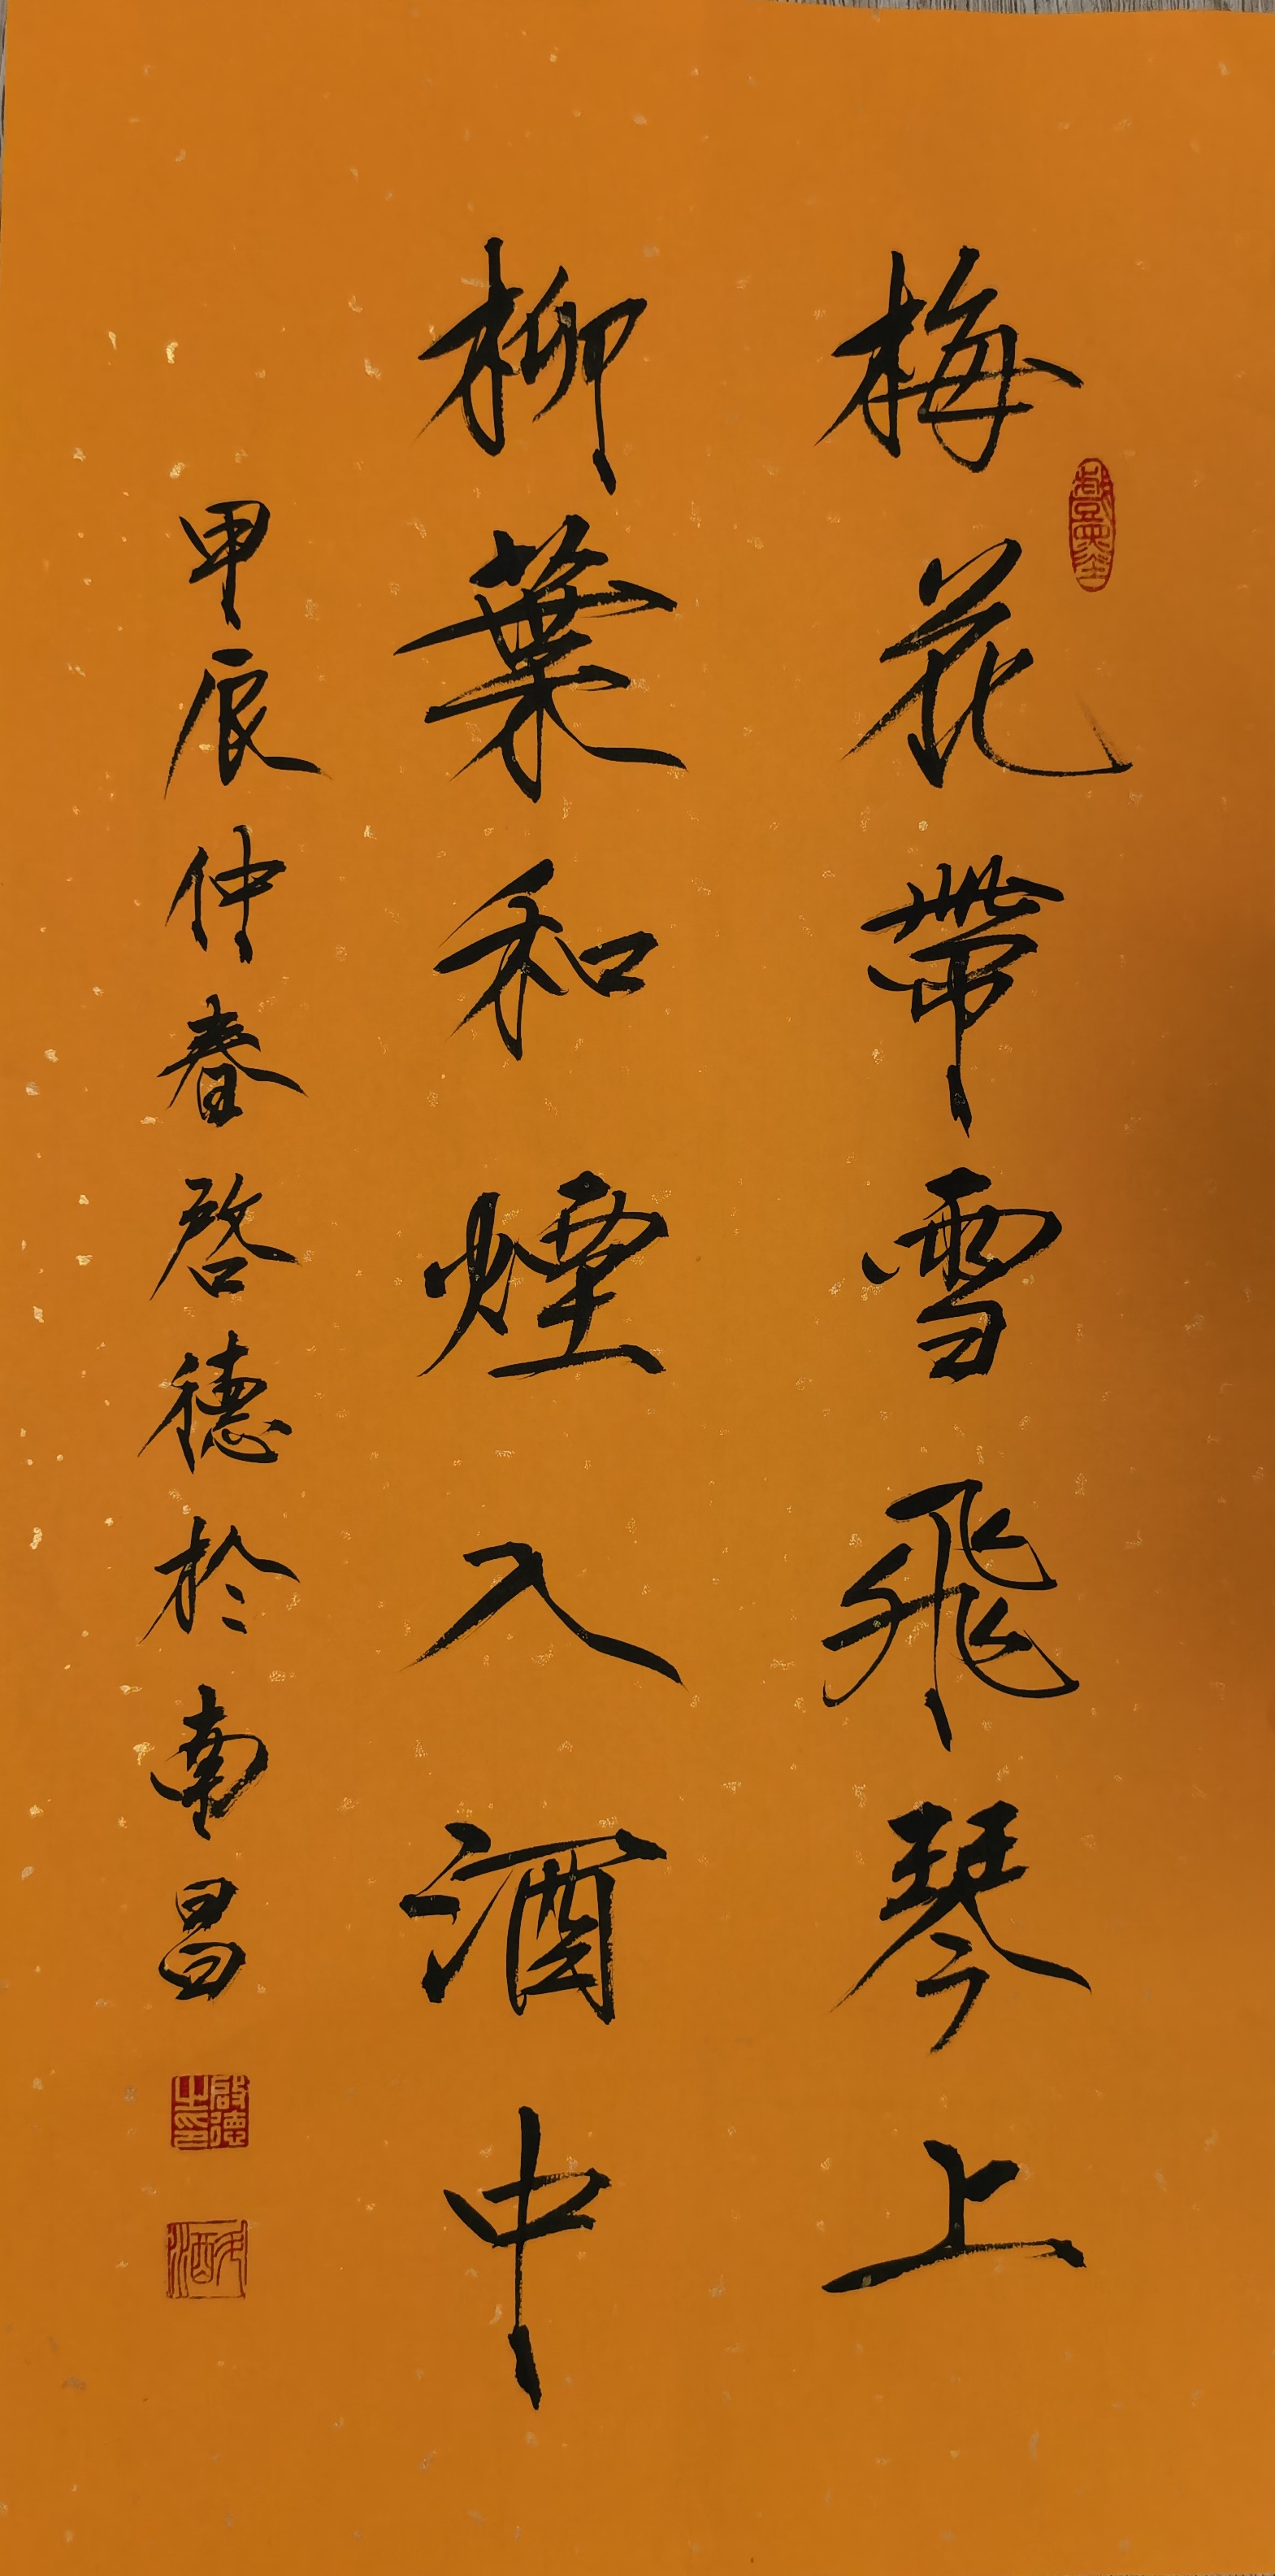 梅花帶雪飛琴上
柳葉和煙入酒中
甲辰仲春啓德於南昌
啟德之印